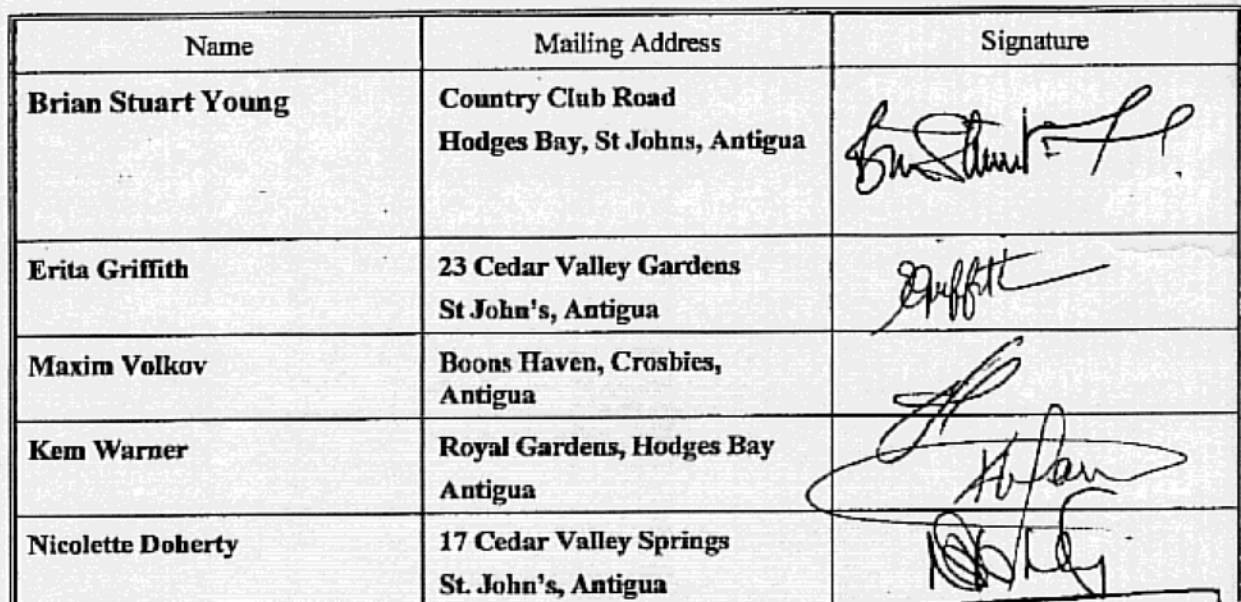 Name Mailing Address Signature
Brian Stuart Young Country Club Road
Hodges Bay, St Johns, Antigua
Erita Griffith 23 Cedar Valley Gardens
St John's, Antigua
Maxim Volkov Boons Haven, Crosbies,
Antigua
Kem Warner Royal Gardens, Hodges Bay
Antigua
Nicolette Doherty 17 Cedar Valley Springs
St. John's, Antigua